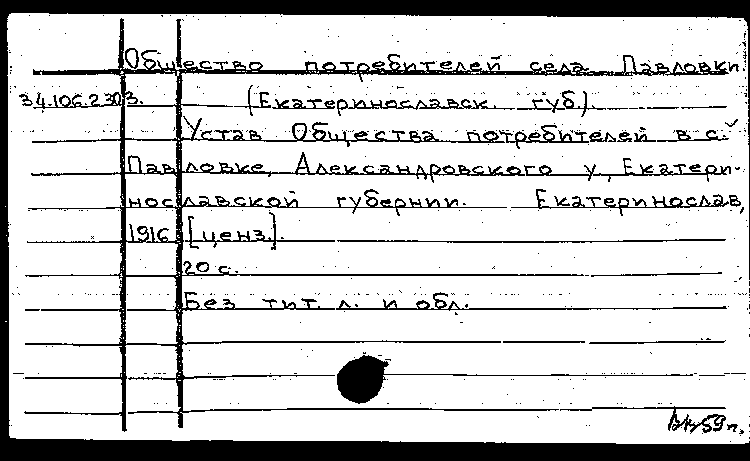 Общество потребителей села Павловки
34.106.2303. (Екатеринославск. губ.).
Устав Общества потребителей в с.
Павловке, Александровского у, Екатери-
нославской губернии. Екатеринослав,
1916 [ценз.].
20 с.
Без тит. л. и обл.
59 г.